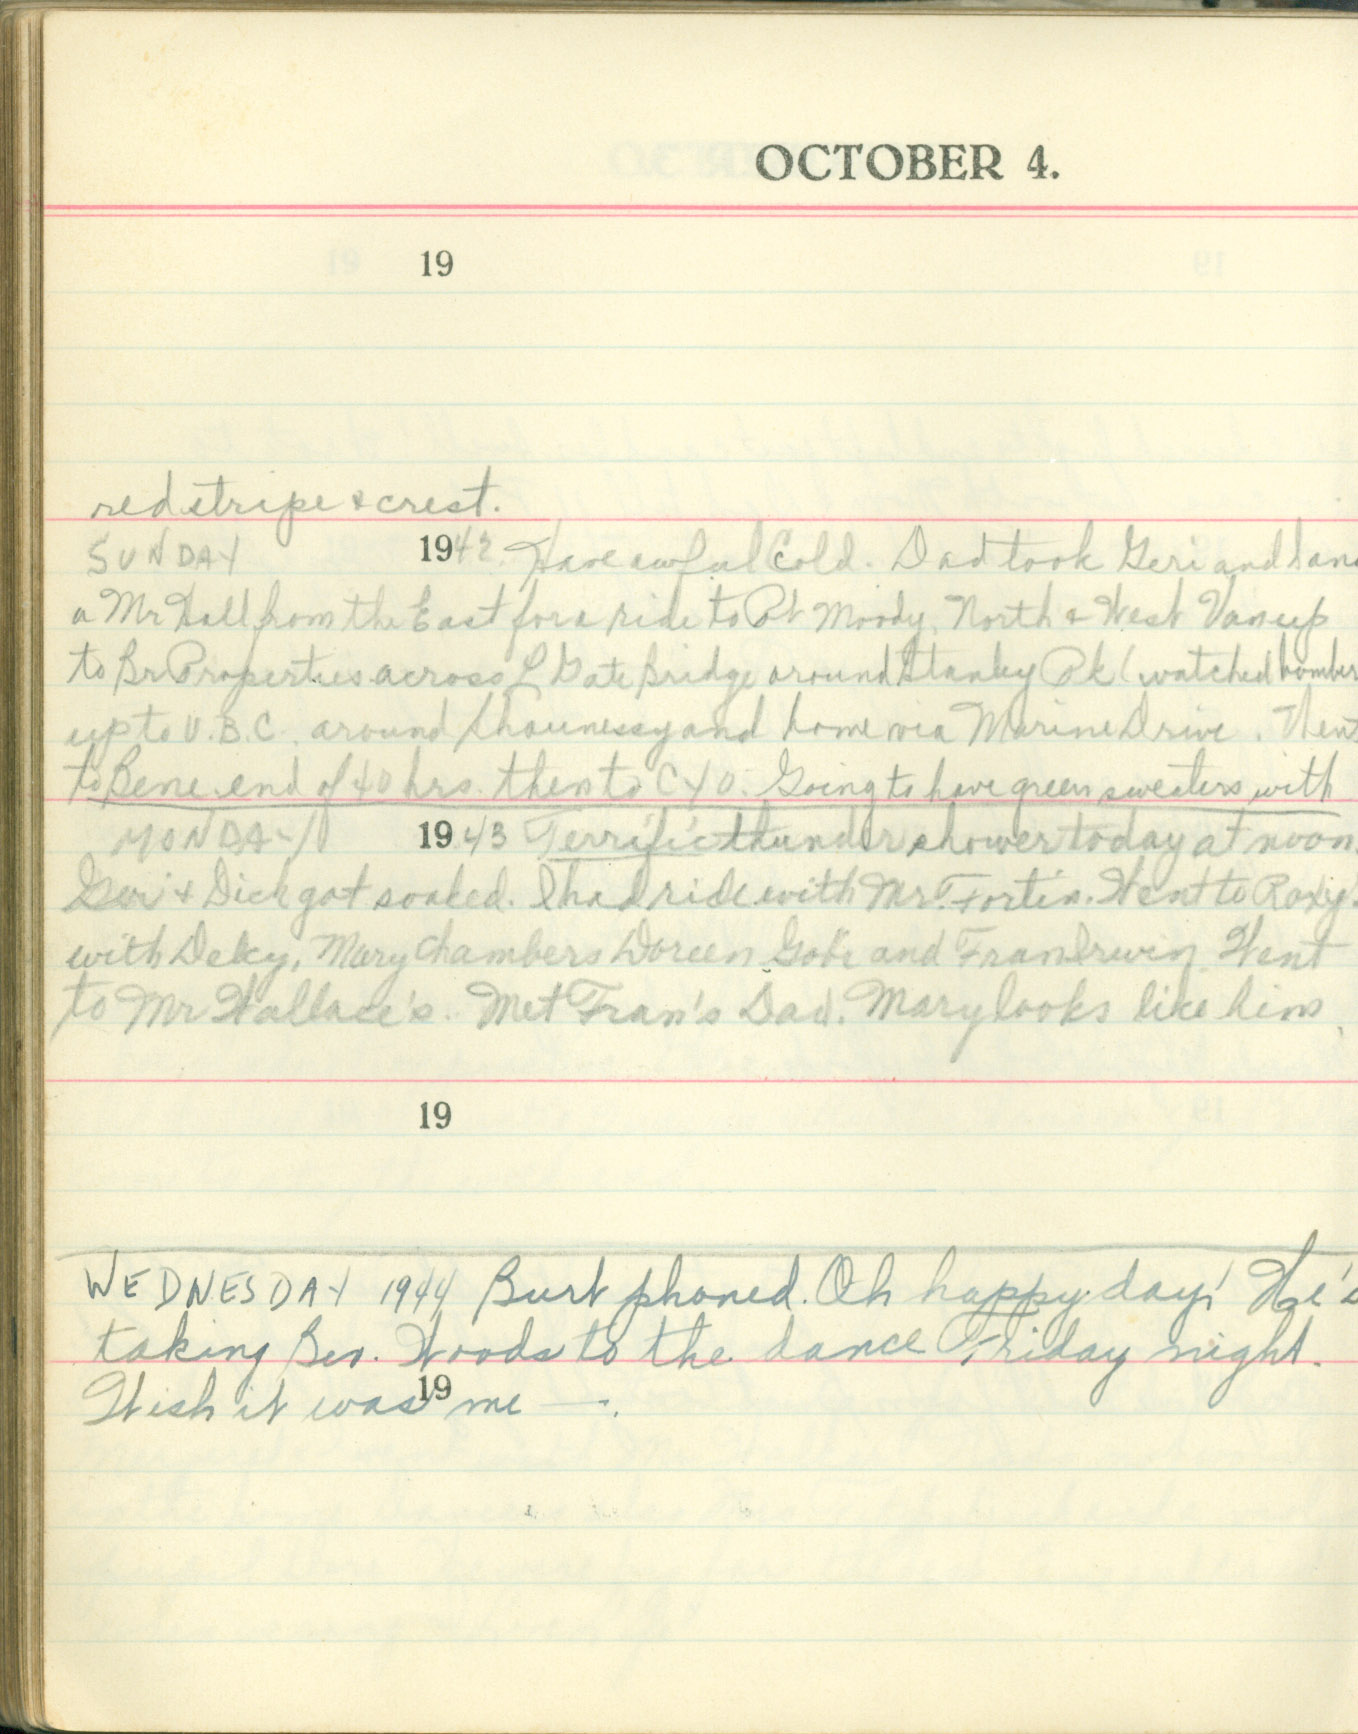 OCTOBER 4.
19
red stripe & crest.
SUNDAY 1942. Have awful cold. Dad took Geri and I and
a Mr Hall from the East for a ride to Pt Moody, North & West Van up
to Br Properties across L Gate Bridge around Stanley Pk (watched bomber
up to U.B.C. around Shaunessy and home via Marine Drive. Went
to Bene. end of 40 hrs. then to CYO. Going to have green sweaters with
MONDAY 1943 Terrific thunder shower today at noon.
Geri & Dick got soaked. I had ride with Mr. Fortin. Went to Roxy's
with Delcy, Mary Chambers Doreen and Fran Irwin. Went
to Mr Wallace's. Met Fran's Dad. Mary looks like him
19
WEDNESDAY 1944 Burt phoned. Oh happy day! He's
taking Bev. Woods to the dance Friday night.
19
Wish it was me —.